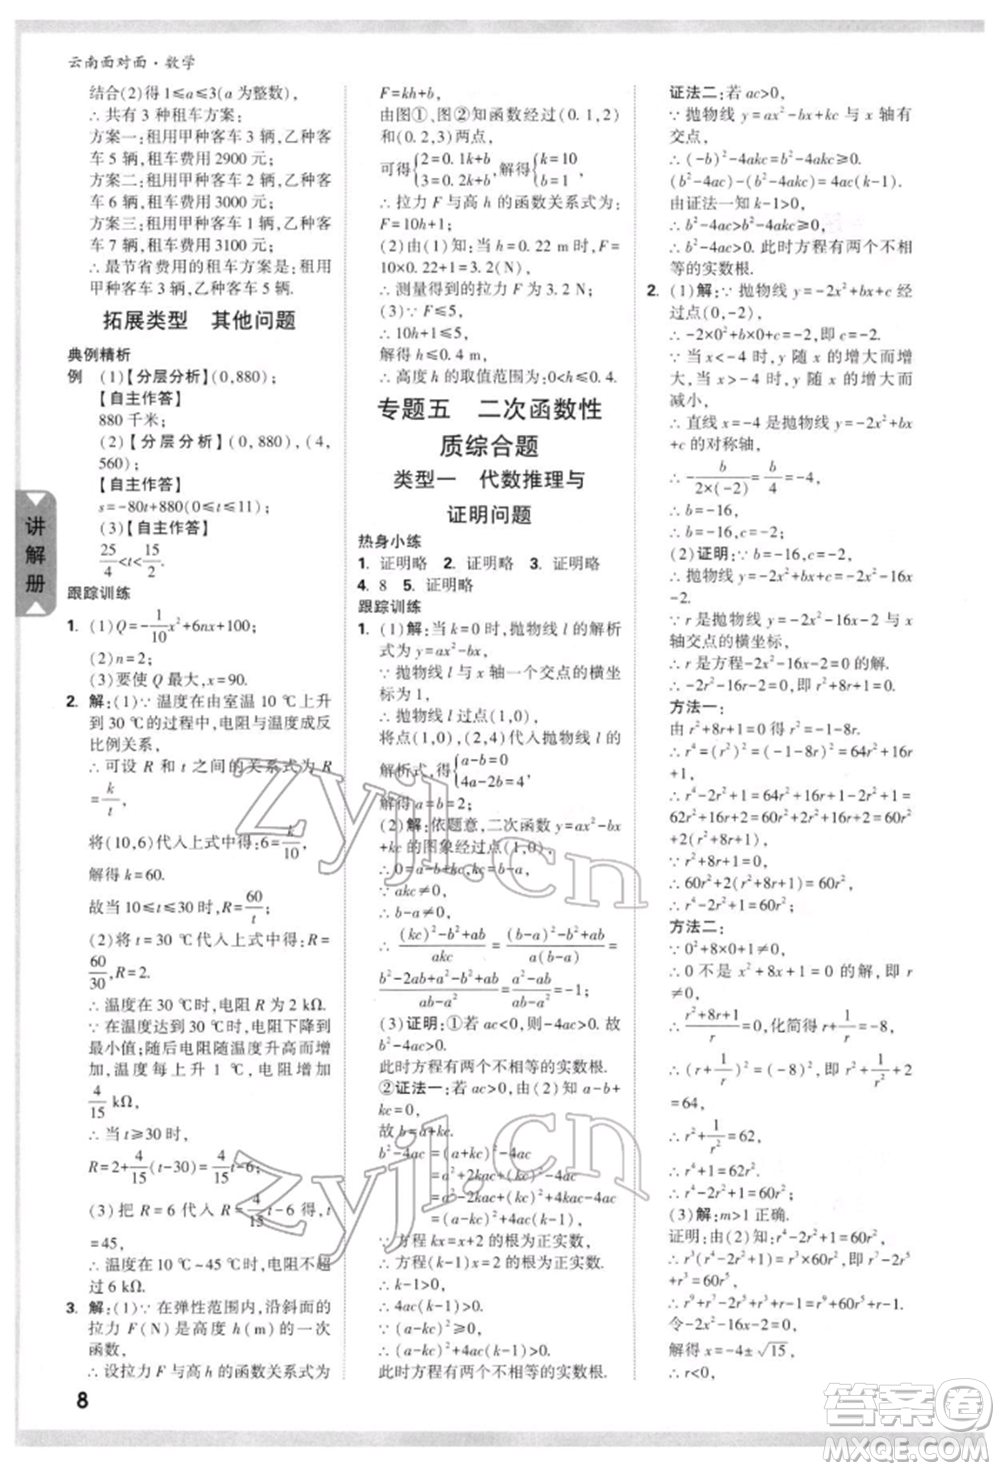 云南面对面·数学
结合(2)得 1≤a≤3(a 为整数),
∴ 共有 3 种租车方案:
方案一:租用甲种客车 3 辆,乙种客
车 5 辆,租车费用 2900 元;
方案二:租用甲种客车 2 辆,乙种客
车 6 辆,租车费用 3000 元;
方案三:租用甲种客车 1 辆,乙种客
车 7 辆,租车费用 3100 元;
∴ 最节省费用的租车方案是:租用
甲种客车 3 辆,乙种客车 5 辆.
拓展类型 其他问题
典例精析
例 (1)【分层分析】(0,880);
【自主作答】
880 千米;
(2)【分层分析】(0,880),(4,
560);
【自主作答】
s=-80t+880(0≤t≤11);
(3)【自主作答】
25/4<t<15/2.
跟踪训练
1. (1)Q=-1/10x²+6nx+100;
(2)n=2;
(3)要使 Q 最大,x=90.
2. 解:(1)∵ 温度在由室温 10 ℃上升
到 30 ℃的过程中,电阻与温度成反
比例关系,
∴ 可设 R 和 t 之间的关系式为 R
=k/t,
将(10,6)代入上式中得:6=k/10,
解得 k=60.
故当 10≤t≤30 时,R=60/t;
(2)将 t=30 ℃代入上式中得:R=
60/30=2.
∴ 温度在 30 ℃时,电阻 R=2 kΩ.
∵ 在温度达到 30 ℃时,电阻下降到
最小值;随后电阻随温度升高而增
加,温度每上升 1 ℃,电阻增加
4/15 kΩ,
∴ 当 t≥30 时,
R=2+4/15(t-30)=4/15t-6;
(3)把 R=6 代入 R=4/15t-6,得 t
=45,
∴ 温度在 10 ℃~45 ℃时,电阻不超
过 6 kΩ.
3. 解:(1)∵ 在弹性范围内,沿斜面的
拉力 F(N)是高度 h(m)的一次
函数,
∴ 设拉力 F 与高 h 的函数关系式为
F=kh+b,
由图①、图②知函数经过(0.1,2)
和(0.2,3)两点,
可得{2=0.1k+b, 3=0.2k+b,解得{k=10 b=1,
∴ 拉力 F 与高 h 的函数关系式为:
F=10h+1;
(2)由(1)知:当 h=0.22 m 时,F=
10×0.22+1=3.2(N),
∴ 测量得到的拉力 F 为 3.2 N;
(3)∵ F≤5,
∴ 10h+1≤5,
解得 h≤0.4,
∴ 高度 h 的取值范围为:0<h≤0.4.
专题五 二次函数性
质综合题
类型一 代数推理与
证明问题
热身小练
1. 证明略 2. 证明略 3. 证明略
4. 8 5. 证明略
跟踪训练
1. (1)解:当 k=0 时,抛物线 l 的解析
式为 y=ax²+bx,
∵ 抛物线 l 与 x 轴一个交点的横坐
标为 1,
∴ 抛物线过点(1,0),
将点(1,0),(2,4)代入抛物线 l 的
解析式,得{a-b=0 4a-2b=4,
解得 a=b=2;
(2)解:依题意,二次函数 y=ax²+bx
+kc 的图象经过点(1,0),
∴ 0=a-b+kc,kc=b-a,
∵ akc≠0,
∴ b-a≠0,
∴ ((kc)²-b²+ab)/akc=((b-a)²-b²+ab)/a(b-a)=
(b²-2ab+a²-b²+ab)/(ab-a²)=(a²-ab)/(ab-a²)=-1;
(3)证明:①若 ac<0,则-4ac>0. 故
b²-4ac>0.
此时方程有两个不相等的实数根.
②证法一:若 ac>0,由(2)知 a-b+
kc=0,
故 b=a+kc.
b²-4ac=(a+kc)²-4ac
=a²+2kac+(kc)²-4ac
=a²-2kac+(kc)²+4kac-4ac
=(a-kc)²+4ac(k-1),
∵ 方程 kx=x+2 的根为正实数,
∴ 方程(k-1)x=2 的根为正实数,
∴ k-1>0,
∴ 4ac(k-1)>0.
∵ (a-kc)²≥0,
∴ (a-kc)²+4ac(k-1)>0.
此时方程有两个不相等的实数根.
证法二:若 ac>0,
∵ 抛物线 y=ax²+bx+kc 与 x 轴有
交点,
∴ (-b)²-4akc=b²-4akc≥0.
(b²-4ac)-(b²-4akc)=4ac(k-1).
由证法一知 k-1>0,
∴ b²-4ac>b²-4akc≥0.
∴ b²-4ac>0. 此时方程有两个不相
等的实数根.
2. (1)解:∵ 抛物线 y=-2x²+bx+c 经
过点(0,-2),
∴ -2×0²+b×0+c=-2,即 c=-2,
∵ 当 x<-4 时,y 随 x 的增大而增
大,当 x>-4 时,y 随 x 的增大而
减小,
∴ 直线 x=-4 是抛物线 y=-2x²+bx
+c 的对称轴,
∴ -b/2×(-2)=b/4=-4,
∴ b=-16,
∴ b=-16,c=-2;
(2)证明:∵ b=-16,c=-2,
∴ 抛物线的解析式为 y=-2x²-16x
-2.
∵ r 是抛物线 y=-2x²-16x-2 与 x
轴交点的横坐标,
∴ r 是方程-2x²-16x-2=0 的解.
∴ -2r²-16r-2=0,即 r²+8r+1=0.
方法一:
由 r²+8r+1=0 得 r²=-1-8r.
∴ r⁴=(r²)²=(-1-8r)²=64r²+16r
+1.
∴ r⁴-2r²+1=64r²+16r+1-2r²+1=
62r²+16r+2=60r²+2r²+16r+2=60r²
+2(r²+8r+1),
∵ r²+8r+1=0,
∴ 60r²+2(r²+8r+1)=60r²,
∴ r⁴-2r²+1=60r²;
方法二:
∵ 0²+8×0+1≠0,
∴ 0 不是 x²+8x+1=0 的解,即 r
≠0,
∴ (r²+8r+1)/r=0,化简得 r+1/r=-8,
∴ (r+1/r)²=(-8)²,即 r²+1/r²+2
=64,
∴ r²+1/r²=62,
∴ r⁴-2r²+1=60r²;
(3)解:m>1 正确.
证明:由(2)知:r⁴-2r²+1=60r²,
8
讲解册
答案圈
MXQE.COM
zyjl.cn
zyjl.cn